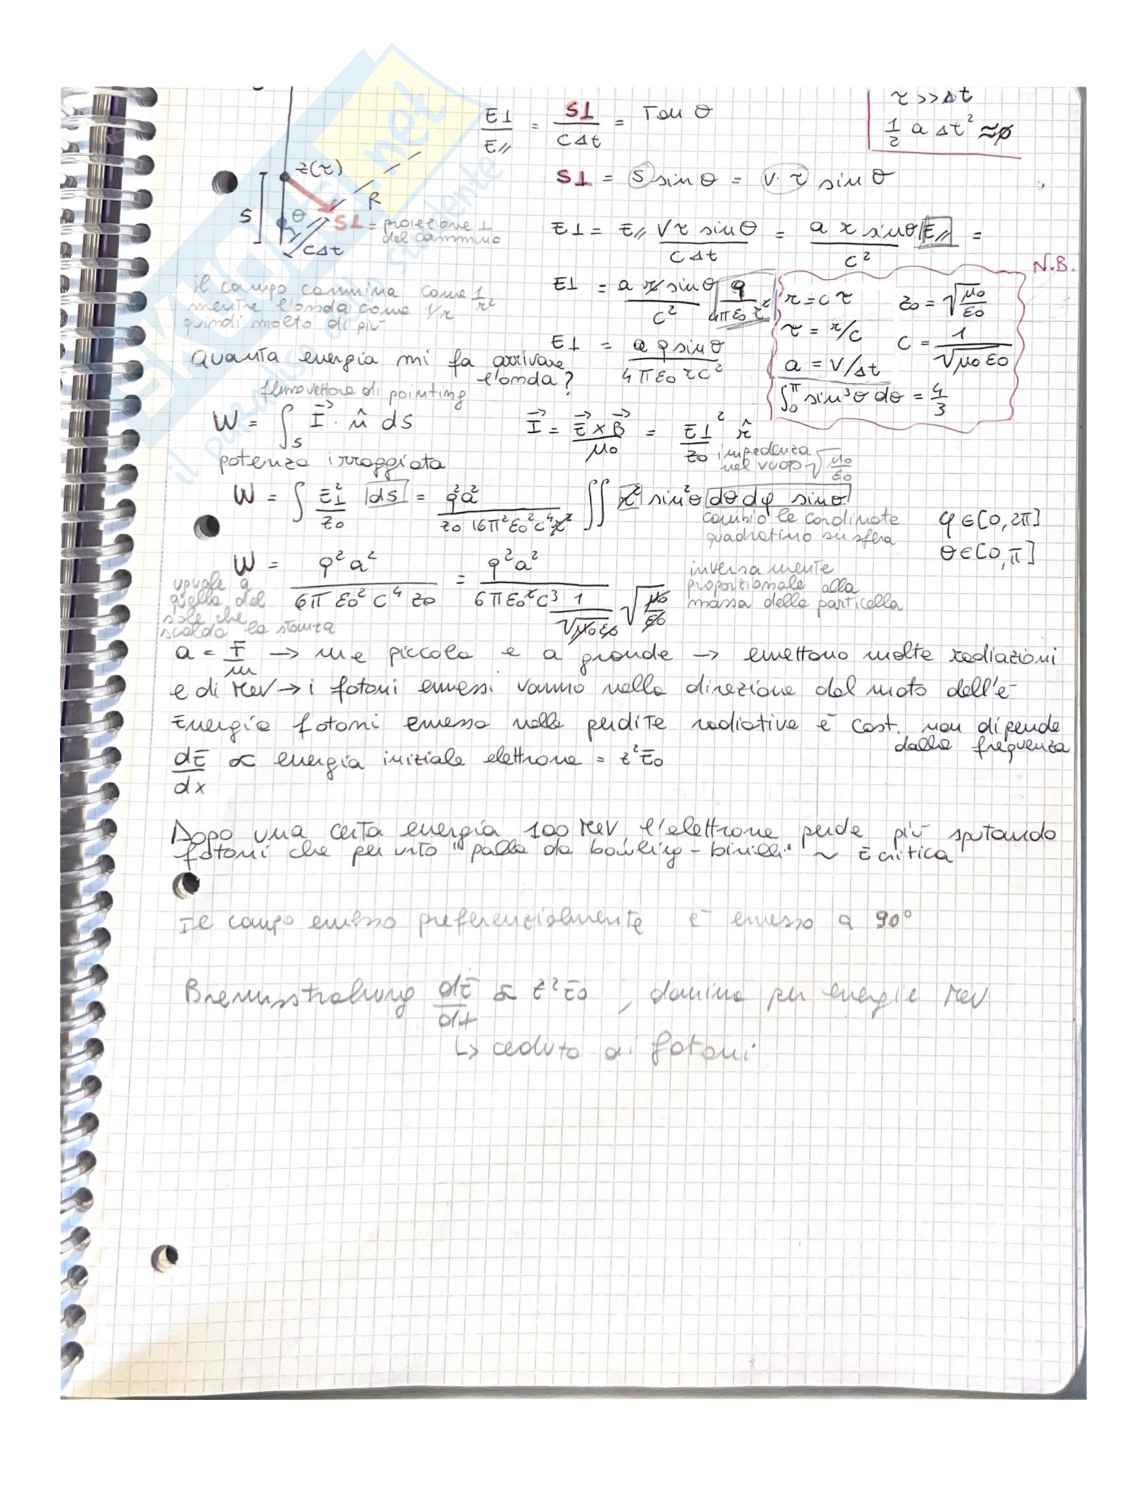 τ >> Δt
E⊥/E// = S⊥/cΔt = Tan θ
1/2 a Δt² ≈ φ
z(τ)
S⊥ = S sinθ = v·τ sinθ
S
θ
R
S⊥ = proiezione ⊥ del cammino
cΔt
E⊥ = E// vτ sinθ / cΔt = a r sinθ E// / c² =
N.B.
il campo cammina come 1/r²
mentre l'onda come 1/r
quindi molto di più
E⊥ = a r sinθ / c² · q / 4πε₀ r²
r = cτ z₀ = √(μ₀/ε₀)
τ = r/c c = 1/√(μ₀ε₀)
a = V/Δt
∫₀^π sin³θ dθ = 4/3
Quanta energia mi fa arrivare l'onda?
E⊥ = a q sinθ / 4πε₀ r c²
flusso vettore di pointing
W = ∫_S I⃗ · n̂ ds
I⃗ = E⃗ × B⃗ / μ₀ = E⊥² / z₀ r̂
impedenza nel vuoto √(μ₀/ε₀)
potenza irraggiata
W = ∫ E⊥²/z₀ ds = q²a² / z₀ 16π²ε₀²c⁴r² ∫∫ r² sin²θ dθ dφ sinθ
cambio le cordinate
quadratino su sfera
φ ∈ [0, 2π]
θ ∈ [0, π]
W = q²a² / 6π ε₀² c⁴ z₀ = q²a² / 6π ε₀² c³ 1/√(μ₀ε₀) √(μ₀/ε₀)
inversamente
proporzionale alla
massa della particella
uguale a
quella del
sole che
scalda la stanza
a = F/m → me piccola e a grande → emettono molte radiazioni
e di MeV → i fotoni emessi vanno nella direzione del moto dell'e⁻
Energia fotoni emessa nelle perdite radiative è cost. non dipende
dalla frequenza
dE/dx ∝ energia iniziale elettrone = z²E₀
Dopo una certa energia 100 MeV, l'elettrone perde più sputando
fotoni che per urto "palla da bowling - birilli" ~ E critica
Il campo emesso preferenzialmente è emesso a 90°
Bremsstrahlung dE/dx ∝ z²E₀, domina per energie MeV
↳ ceduta ai fotoni